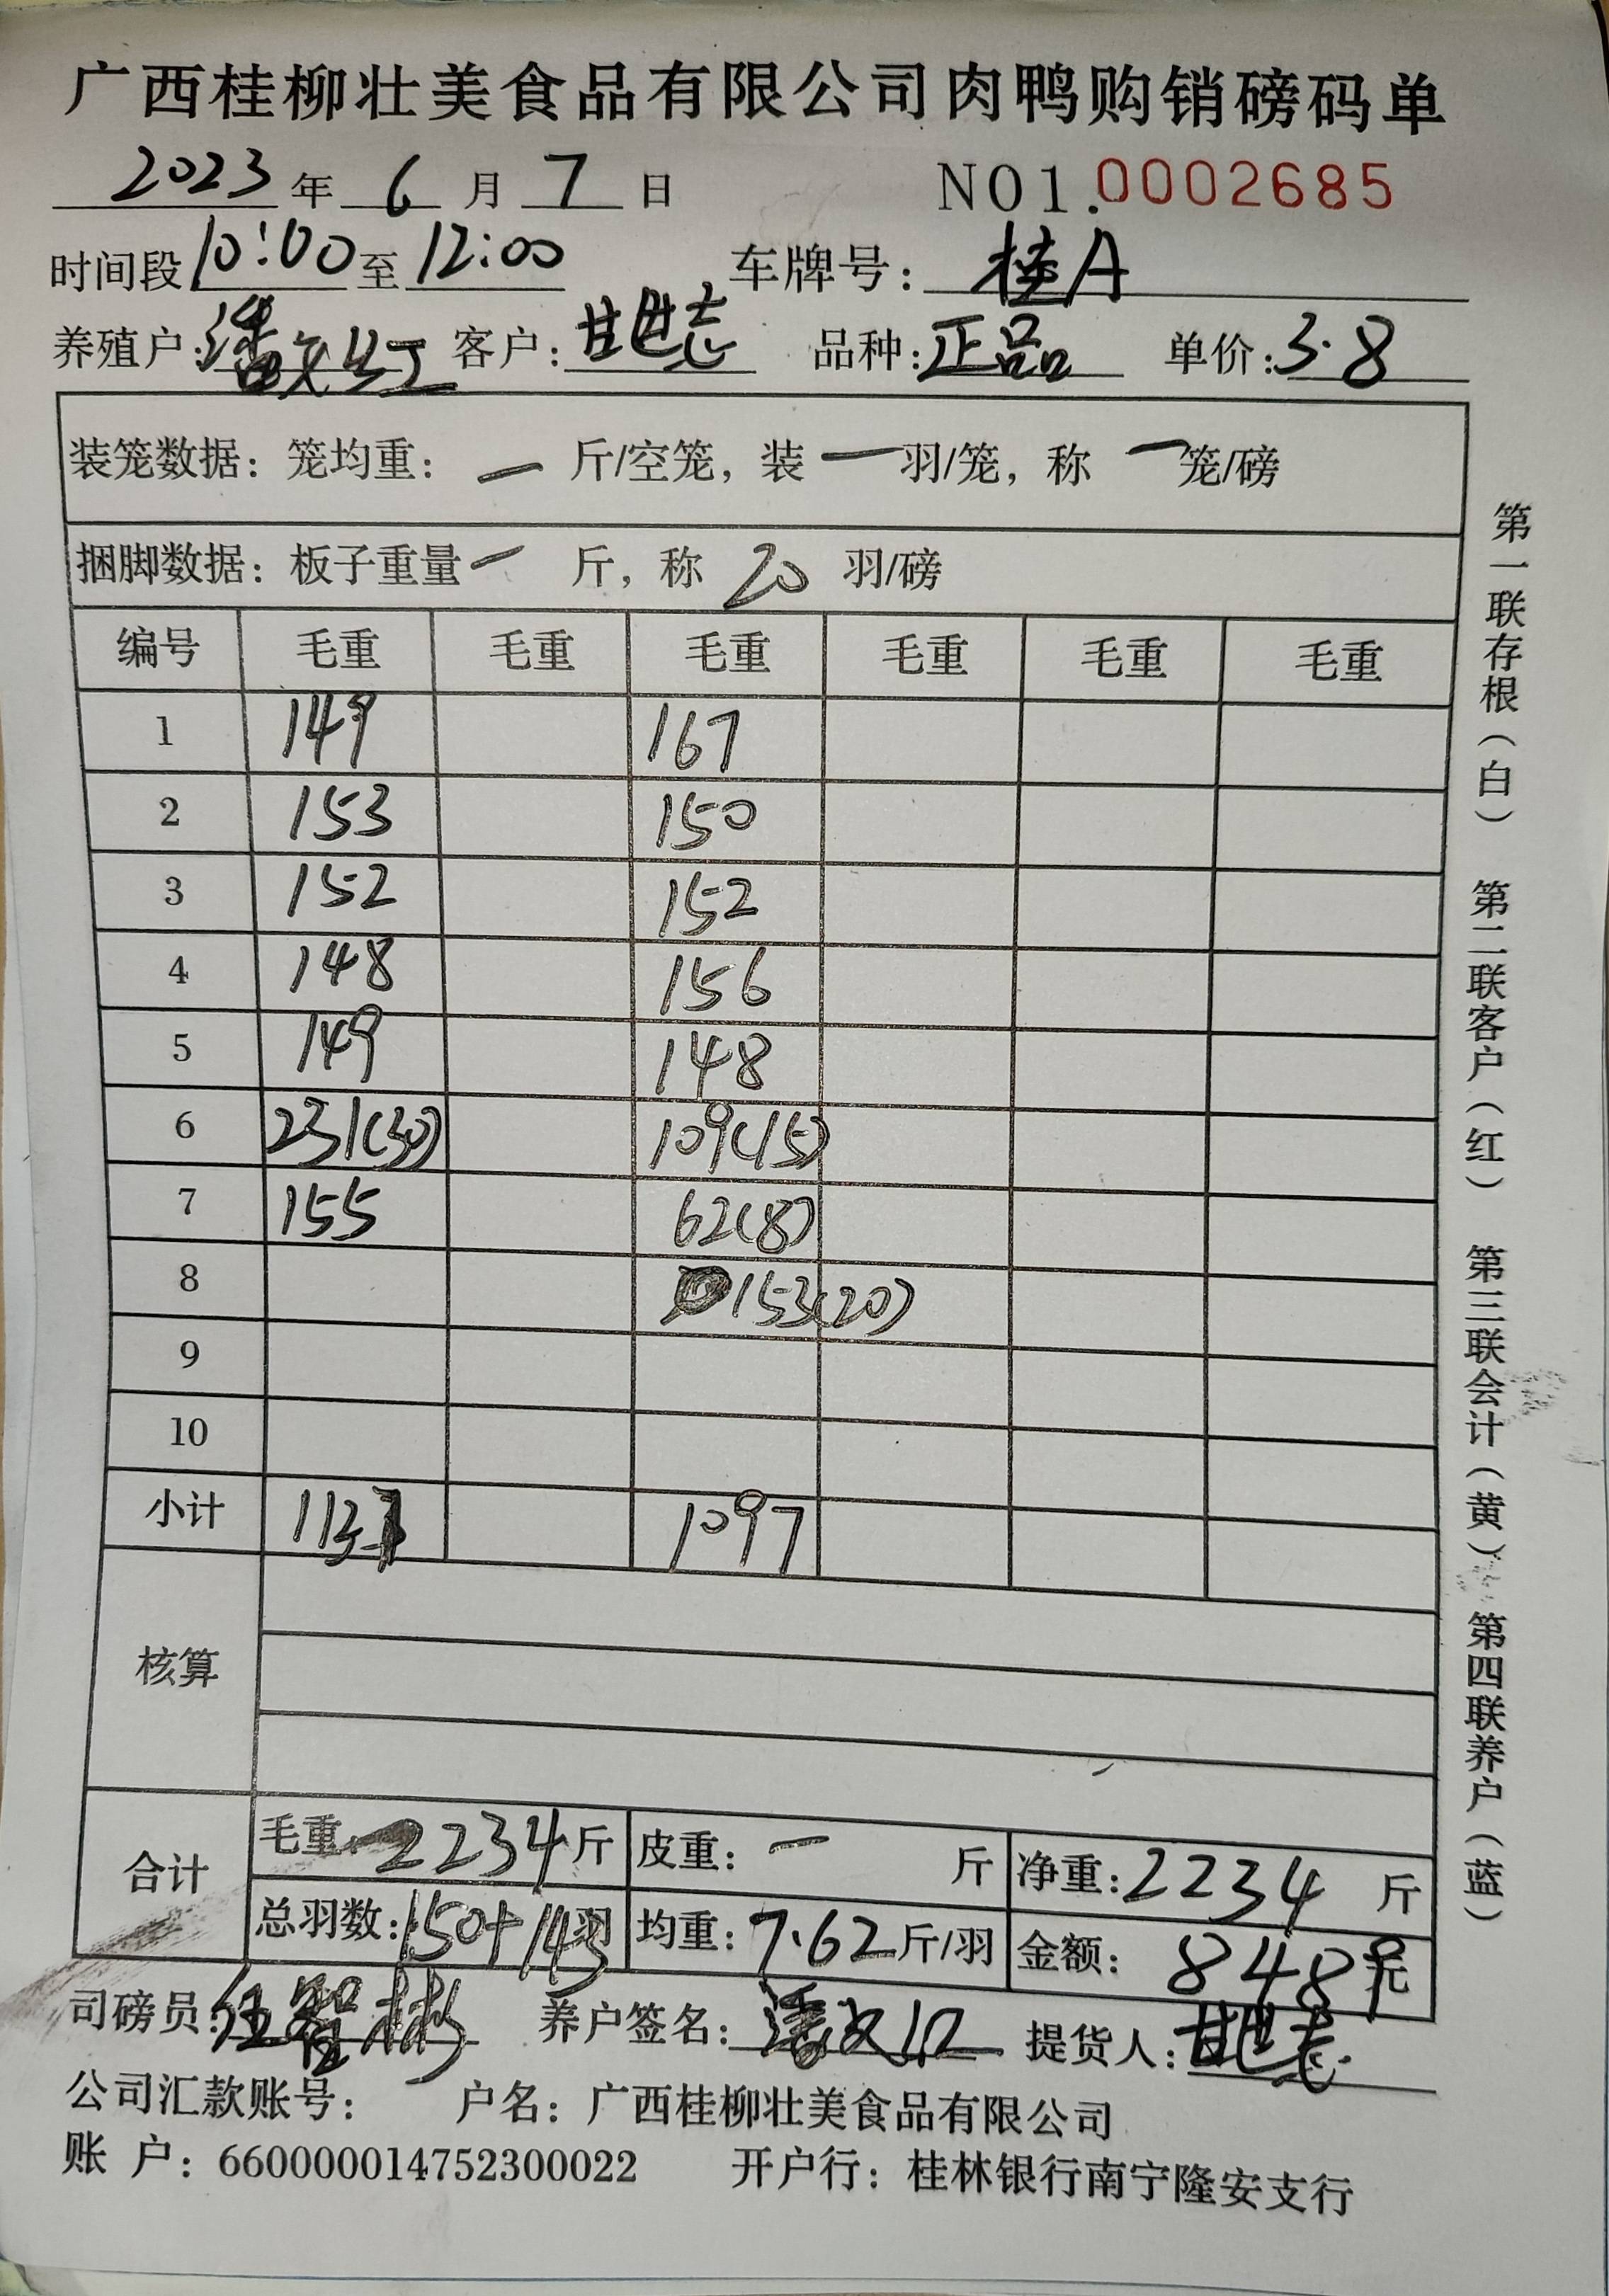 广西桂柳壮美食品有限公司肉鸭购销磅码单
2023 年 6 月 7 日 NO1.0002685
时间段 10:00 至 12:00 车牌号: 桂A
养殖户: 潘文红 客户: 甘胜志 品种: 正品 单价: 3.8
装笼数据: 笼均重: — 斤/空笼, 装 — 羽/笼, 称 — 笼/磅
捆脚数据: 板子重量 — 斤, 称 20 羽/磅
编号 毛重 毛重 毛重 毛重 毛重 毛重
1 149 167
2 153 150
3 152 152
4 148 156
5 149 148
6 231(30) 109(15)
7 155 62(8)
8 153(20)
9
10
小计 1137 1097
核算
合计 毛重: 2234 斤 皮重: — 斤 净重: 2234 斤
总羽数: 150+143 羽 均重: 7.62 斤/羽 金额: 8489 元
司磅员: 养户签名: 潘文红 提货人: 甘胜志
公司汇款账号: 户名: 广西桂柳壮美食品有限公司
账 户: 660000014752300022 开户行: 桂林银行南宁隆安支行
第一联存根(白) 第二联客户(红) 第三联会计(黄) 第四联养户(蓝)